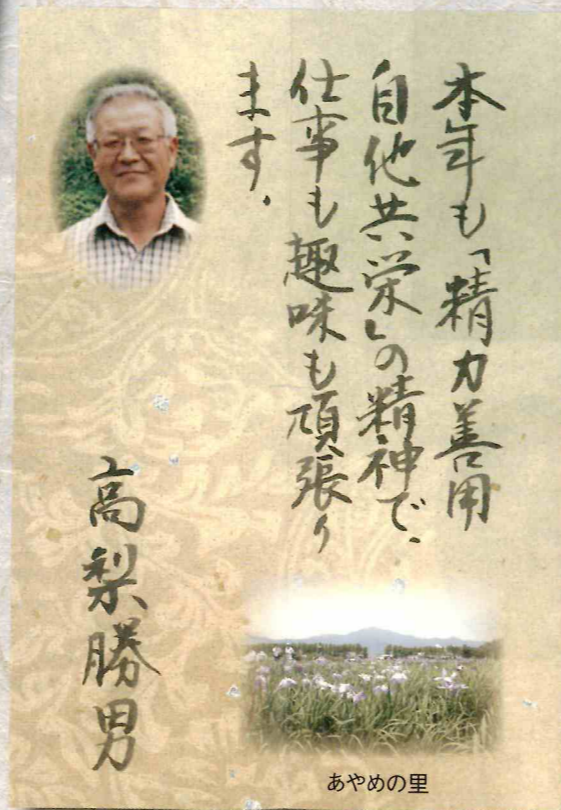 本年も「精力善用
自他共栄」の精神で、
仕事も趣味も頑張り
ます。
高梨勝男
あやめの里